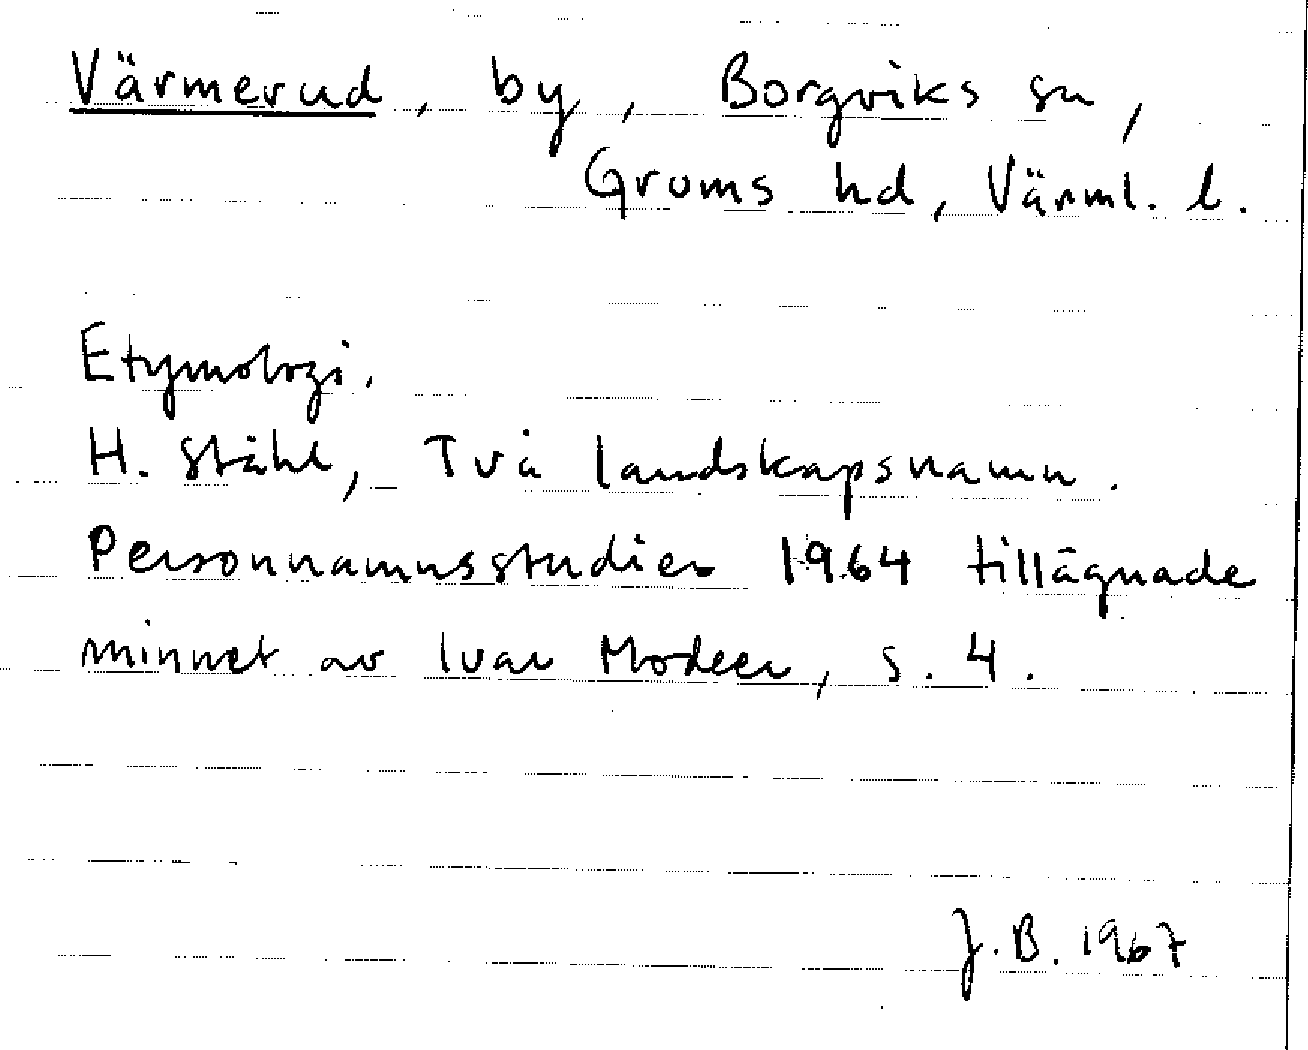 Värmerud, by, Borgviks sn,
Grums hd, Värml. l.
Etymologi.
H. Ståhl, Två landskapsnamn.
Personnamnsstudier 1964 tillägnade
minnet av Ivar Modeer, s. 4.
J.B. 1967